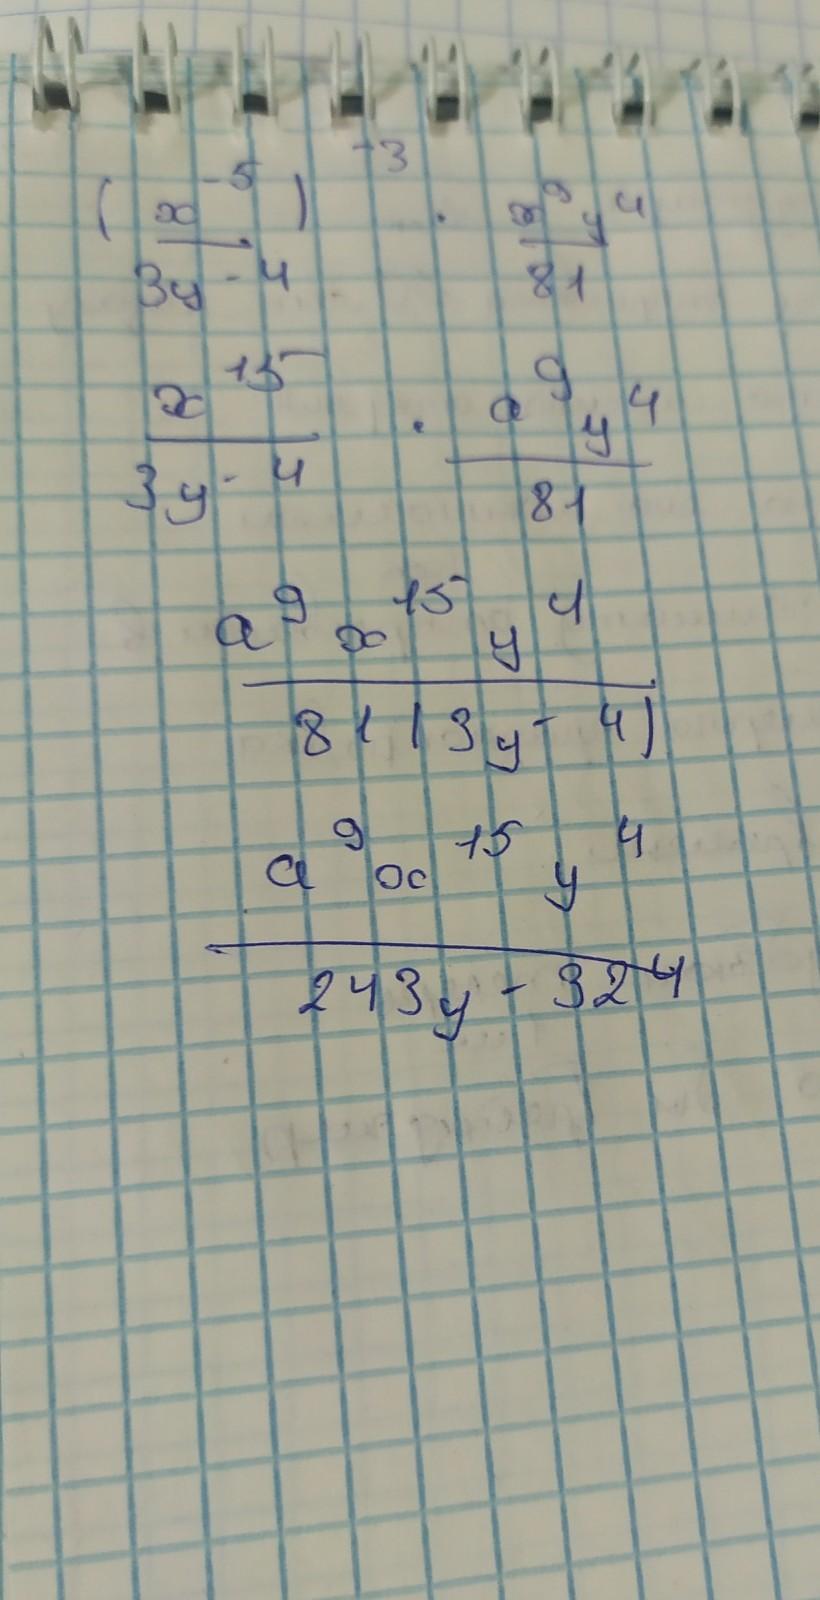 (x⁻⁵)⁻³ · x⁹y⁴
3y⁻⁴ 81
x¹⁵ · a⁹y⁴
3y⁻⁴ 81
a⁹x¹⁵y⁴
81(3y - 4)
a⁹x¹⁵y⁴
243y - 324